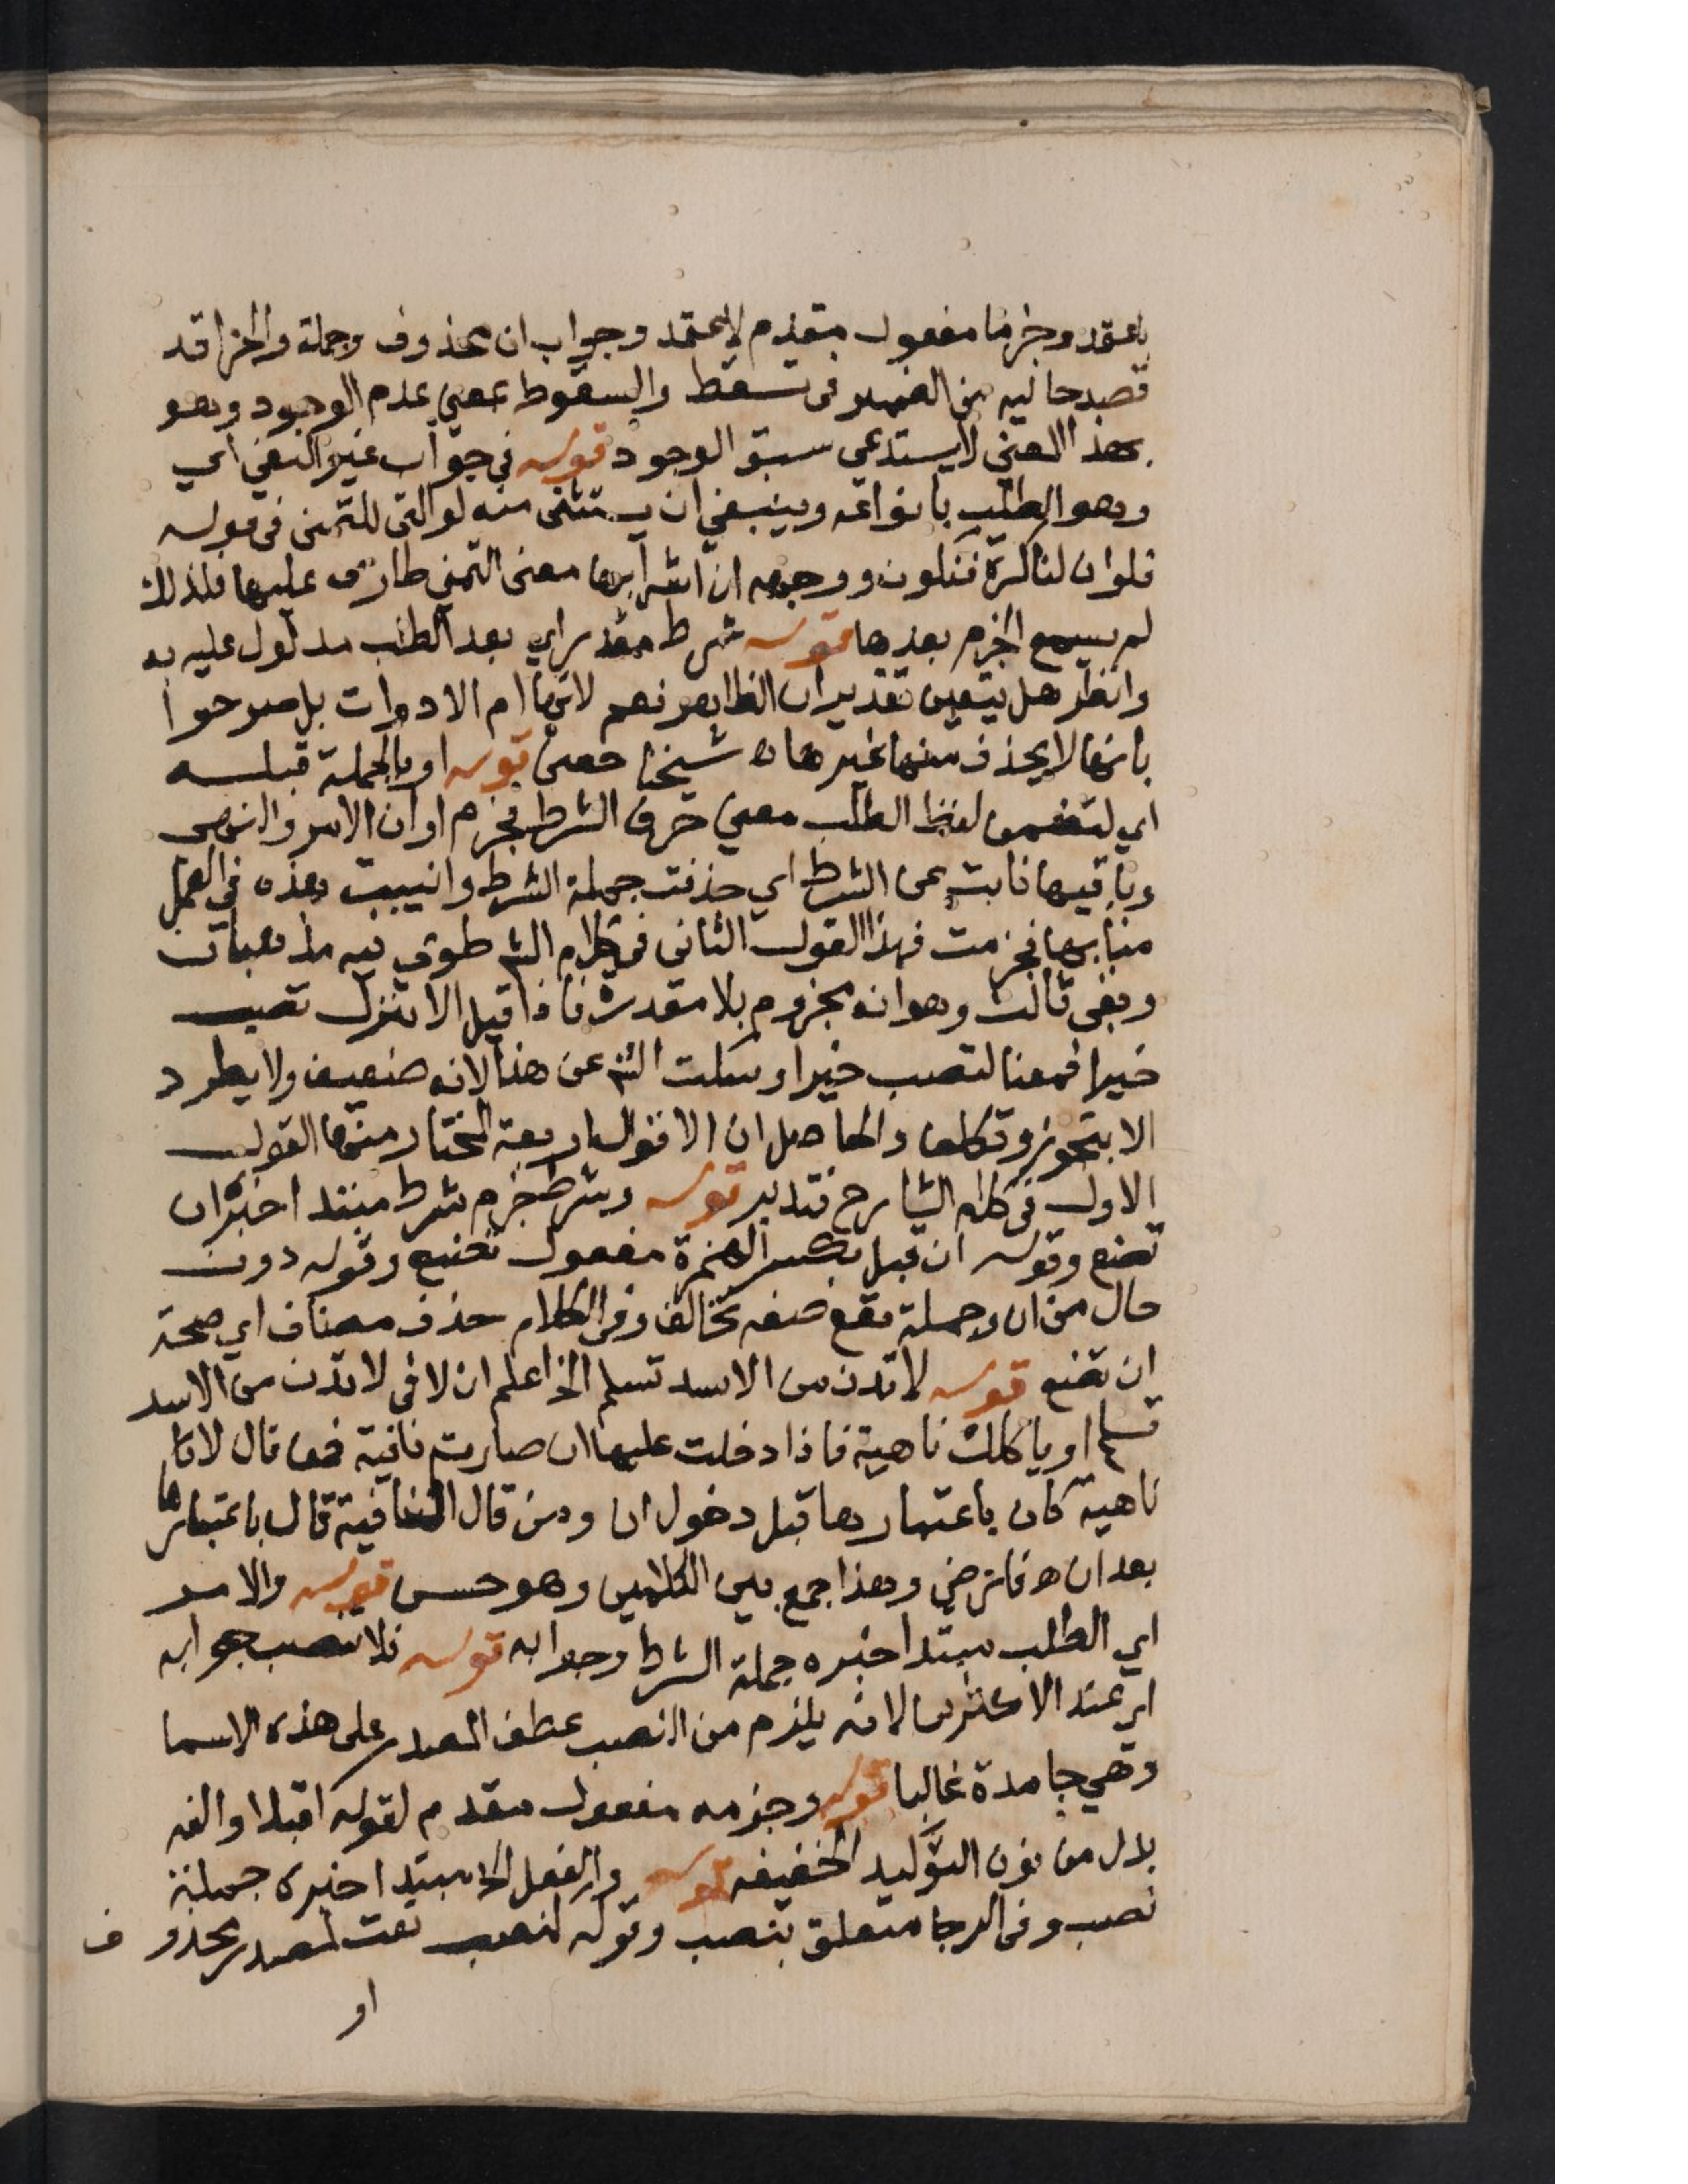 باعتمد وجزما مفعول مقدم لاعتمد وجواب ان محذوف وجملة والجزا قد
قصد حالية من الضمير فى تسقط والسقوط بمعنى عدم الوجود وهو
بهذا المعنى لا يستدعي سبق الوجود قوله في جواب غير النفي اي
وهو الطلب بانواعه وينبغي ان يستثنى منه لو التى للتمنى فى قوله
فلو ان لنا كرة فنكون ووجهه ان اشرابها معنى التمني طارئ عليها فلذلك
لم يسمع الجزم بعدها قوله شرط مقدر اي بعد الطلب مدلول عليه به
وانظر هل يتعين تقدير ان الظاهر نعم لانها ام الادوات بل صرحوا
بانها لا يحذف منها غيرها اه شيخنا حفنى قوله او بالجملة قبله
اي لتضمن لفظ الطلب معنى حرف الشرط فجزم او ان الامر والنهى
وباقيها نابت عن الشرط اي حذفت جملة الشرط وانيبت هذه في العمل
منابها فجزمت فهذا القول الثانى فى كلام الشـ طوي فيه مذهبان
وبقى ثالث وهو انه مجزوم بلام مقدرة فاذا قيل الا تنزل تصب
خيرا فمعناه لتصب خيرا وسكت الشـ عن هذا لانه ضعيف ولا يطرد
الا بتجوز وتكلف والحاصل ان الاقوال اربعة المختار منها القول
الاول فى كلام الشارح فتدبر قوله وشرط جزم شرط مبتدا خبره ان
تضع وقوله ان قبل بكسر الهمزة مفعول تضع وقوله دون
حال من ان وجملة يقع صفه تخالف وفى الكلام حذف مضاف اي صحة
ان تضع قوله لا تدن من الاسد تسلم الخ اعلم ان لا فى لا تدن من الاسد
تسلم او ياكلك ناهية فاذا دخلت عليها ان صارت نافية فمن قال لا نا
ناهية كان باعتبارها قبل دخول ان ومن قال النافية قال باعتبارها
بعد ان ه فارضي وهذا جمع بين الكلامين وهو حسن قوله والامر
اي الطلب مبتدا خبره جملة الشرط وجوابه قوله فلا تنصب جوابه
اي عند الاكثرين لانه يلزم من النصب عطف المصدر على هذه الاسما
وهي جامدة غالبا قوله وجزمه مفعول مقدم لقوله اقبلا والفه
بدل من نون التوكيد الخفيفه قوله والفعل الخ مبتدا خبره جملة
نصب وفى الرجا متعلق بنصب وقوله كنصب نعت لمصدر محذوف
او